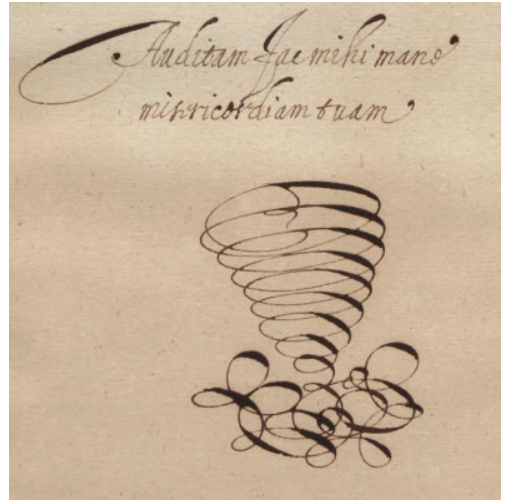 Auditam fac mihi mane
misericordiam tuam